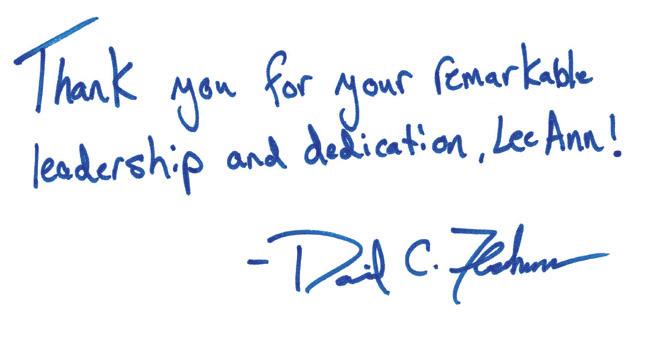 Thank you for your remarkable
leadership and dedication, LeeAnn!
- David C.